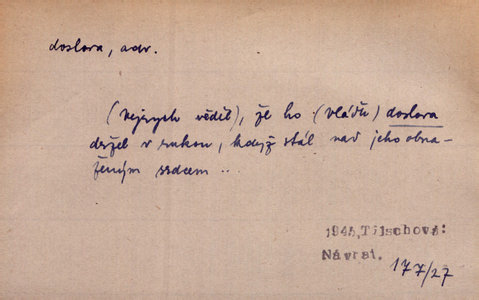 doslova, adv.
(nejsych věděl), že ho (vládce) doslova
držel v rukou, když stál nad jeho obna-
ženým srdcem ..
1945, Tilschová:
Návrat.
177/27